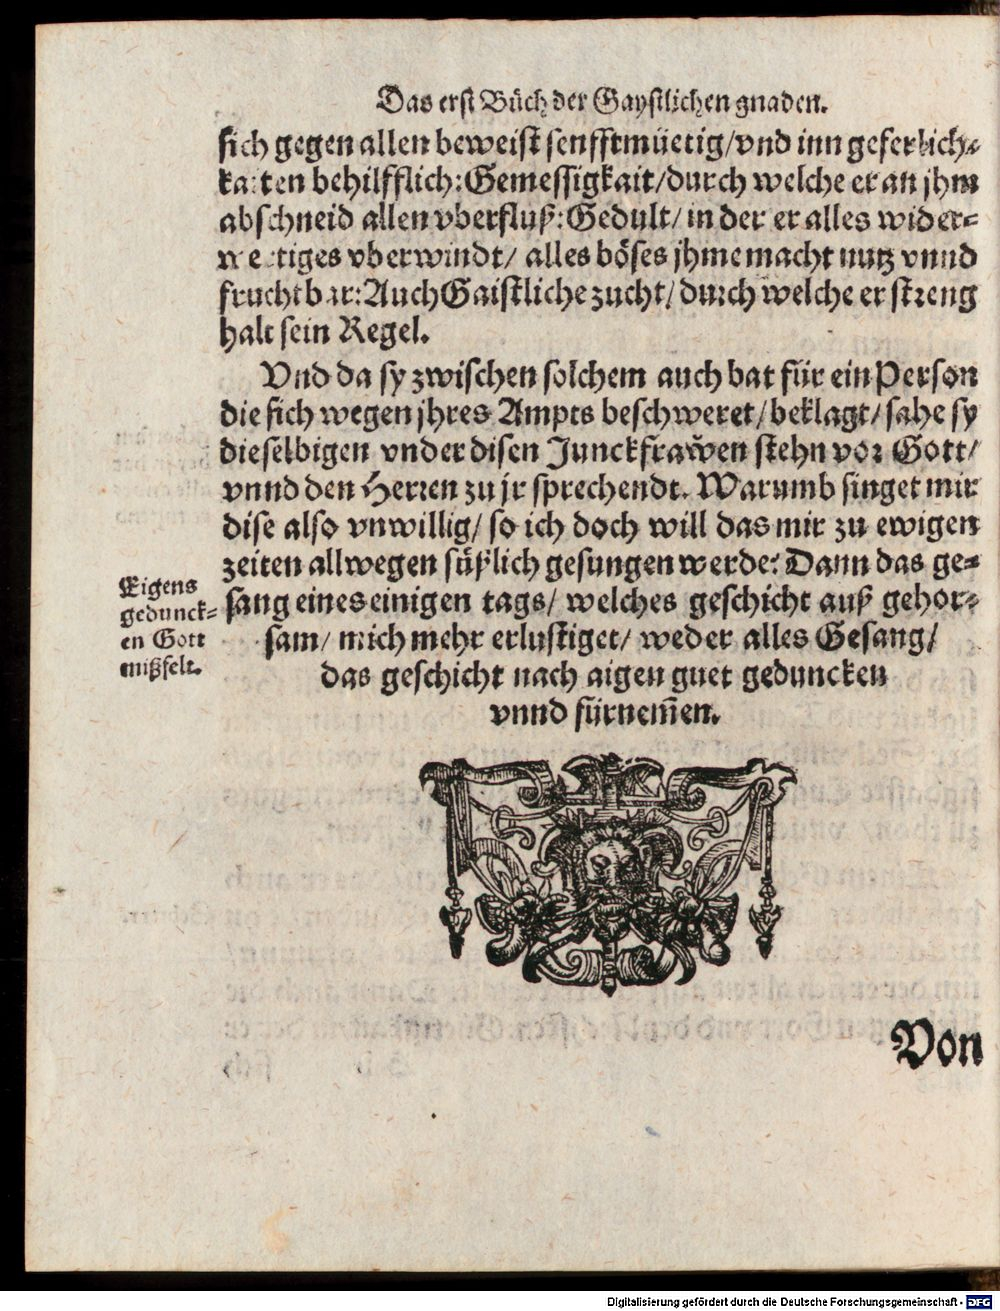 Das erst Bůch der Gaystlichen gnaden.
sich gegen allen beweist senfftmüetig/vnd inn geferlich⸗
kaiten behilfflich: Gemessigkait/durch welche er an jhm
abschneid allen vberfluß: Gedult/ in der er alles wider⸗
wertiges vberwindt/ alles böses jhme macht nutz vnnd
fruchtbar: Auch Gaistliche zucht/ durch welche er streng
halt sein Regel.
Vnd da sy zwischen solchem auch bat für ein Person
die sich wegen jhres Ampts beschweret/beklagt/sahe sy
dieselbigen vnder disen Junckfraw̃en stehn vor Gott/
vnnd den Herren zu jr sprechendt. Warumb singet mir
dise also vnwillig/ so ich doch will das mir zu ewigen
zeiten allwegen süßlich gesungen werde: Dann das ge⸗
sang eines einigen tags/ welches geschicht auß gehor⸗
sam/ mich mehr erlustiget/ weder alles Gesang/
das geschicht nach aigen guet geduncken
vnnd fürnem̃en.
Eigens
gedunck⸗
en Gott
mißfelt.
Von
Digitalisierung gefördert durch die Deutsche Forschungsgemeinschaft - DFG